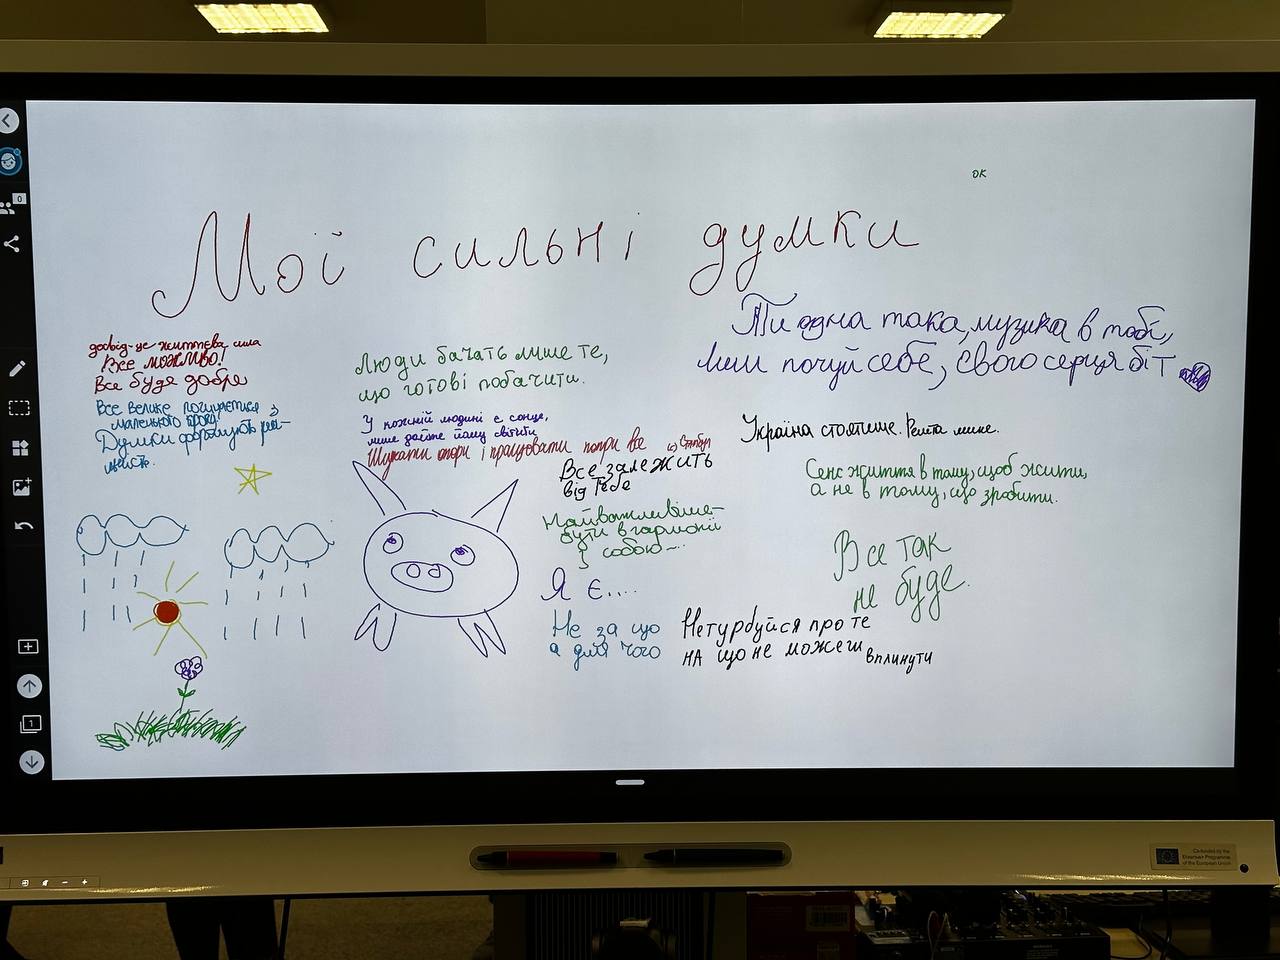 ок
Мої сильні думки
Ти одна така, музика в тобі,
лиш почуй себе, свого серця біт
досвід-це життєва сила
Все можливо!
Все буде добре
Все велике починується з
маленького кроку
Думки формують реа-
льність.
Люди бачать лише те,
що готові побачити.
У кожній людині є сонце,
лише дайте йому світити
Шукати опори і працювати попри все
Все залежить
від тебе
Найважливіше-
бути в гармонії
з собою...
Я є....
Не за що
а для чого
Україна стоятиме. Решта мине.
Сенс життя в тому, щоб жити,
а не в тому, що зробити.
Все так
не буде.
Не турбуйся про те
на що не можеш вплинути
0
1
Co-funded by the
Erasmus+ Programme
of the European Union